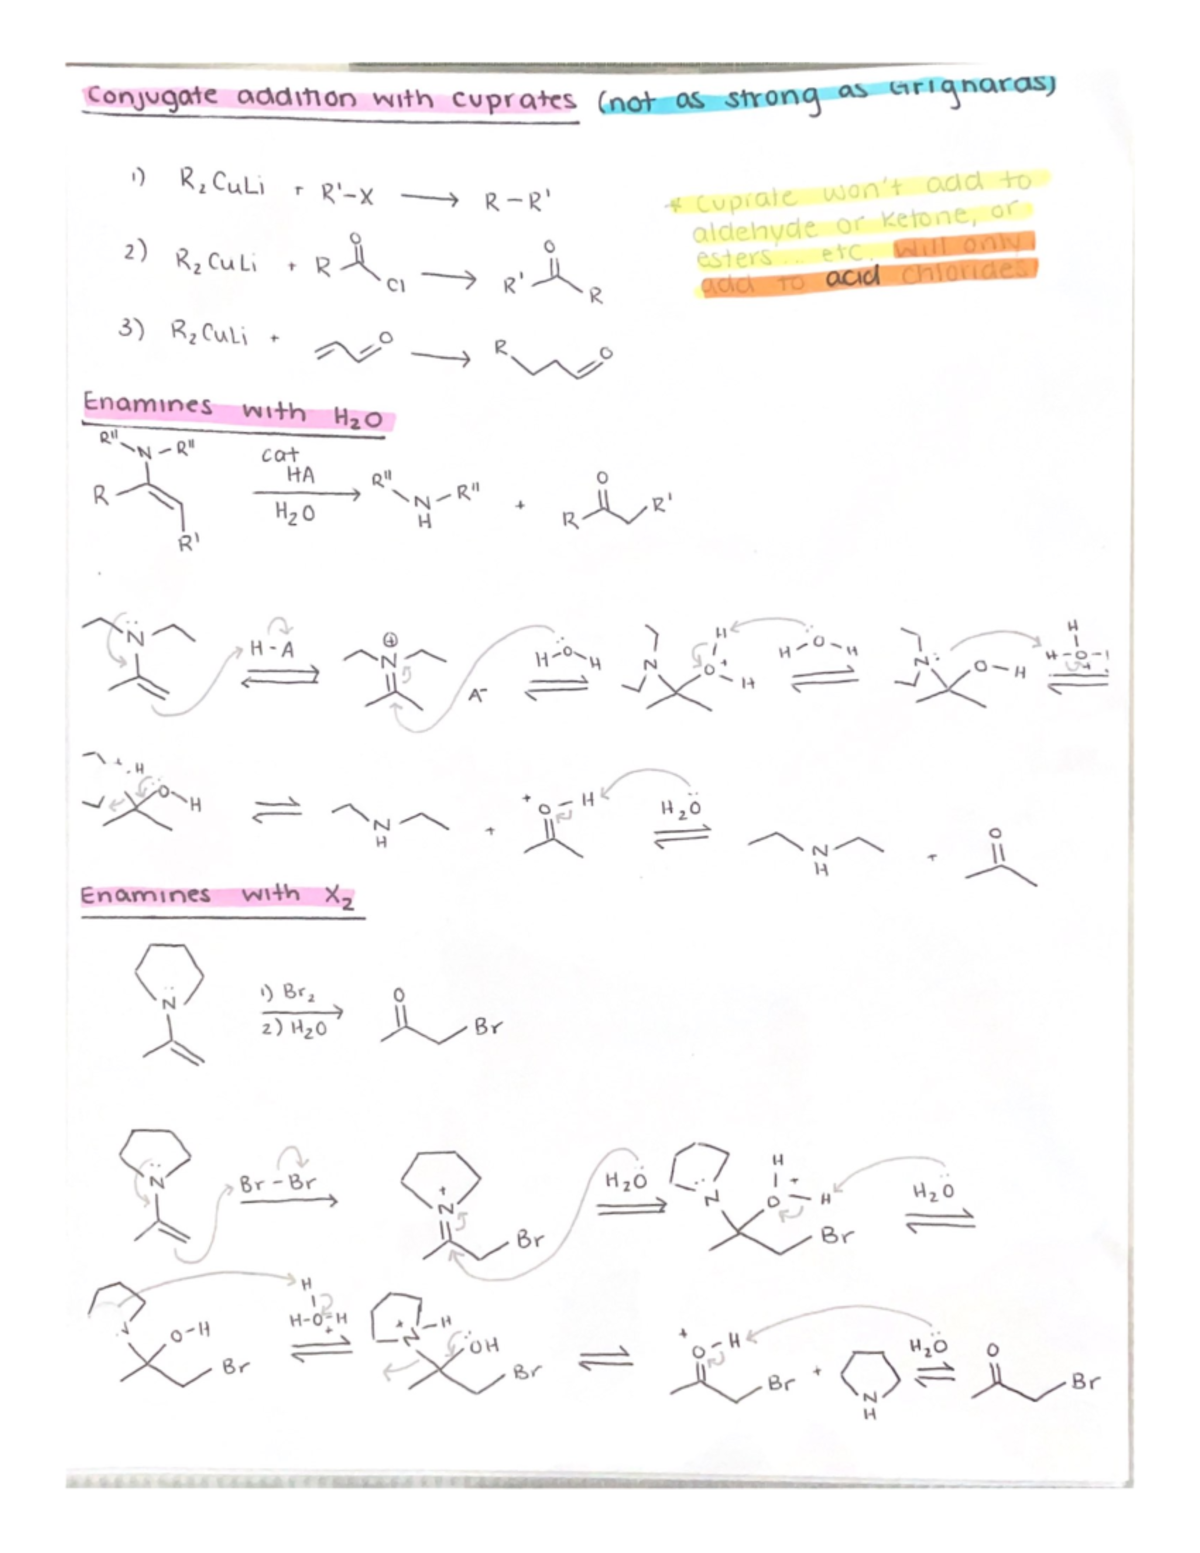 Conjugate addition with cuprates (not as strong as Grignards)
1) R₂CuLi + R'-X → R-R'
2) R₂CuLi + R O Cl → R' O R
3) R₂CuLi + O → R O
* Cuprate won't add to
aldehyde or ketone, or
esters... etc. Will only
add to acid chlorides
Enamines with H₂O
R" N-R" R R' cat HA H₂O → R" N-R" H + R O R'
N H-A ⇌ ⊕ N A⁻ H-O-H ⇌ N H O⁺ H H-O-H ⇌ N: O-H H H-O-
+ H O-H ⇌ N H + ⁺O-H H₂O ⇌ N H + O
Enamines with X₂
N 1) Br₂ 2) H₂O → O Br
N Br-Br → + N Br H₂O ⇌ N H O⁺-H Br H₂O ⇌
N O-H Br H H-O-H + ⇌ + N-H OH Br ⇌ + O-H Br + N H H₂O ⇌ O Br